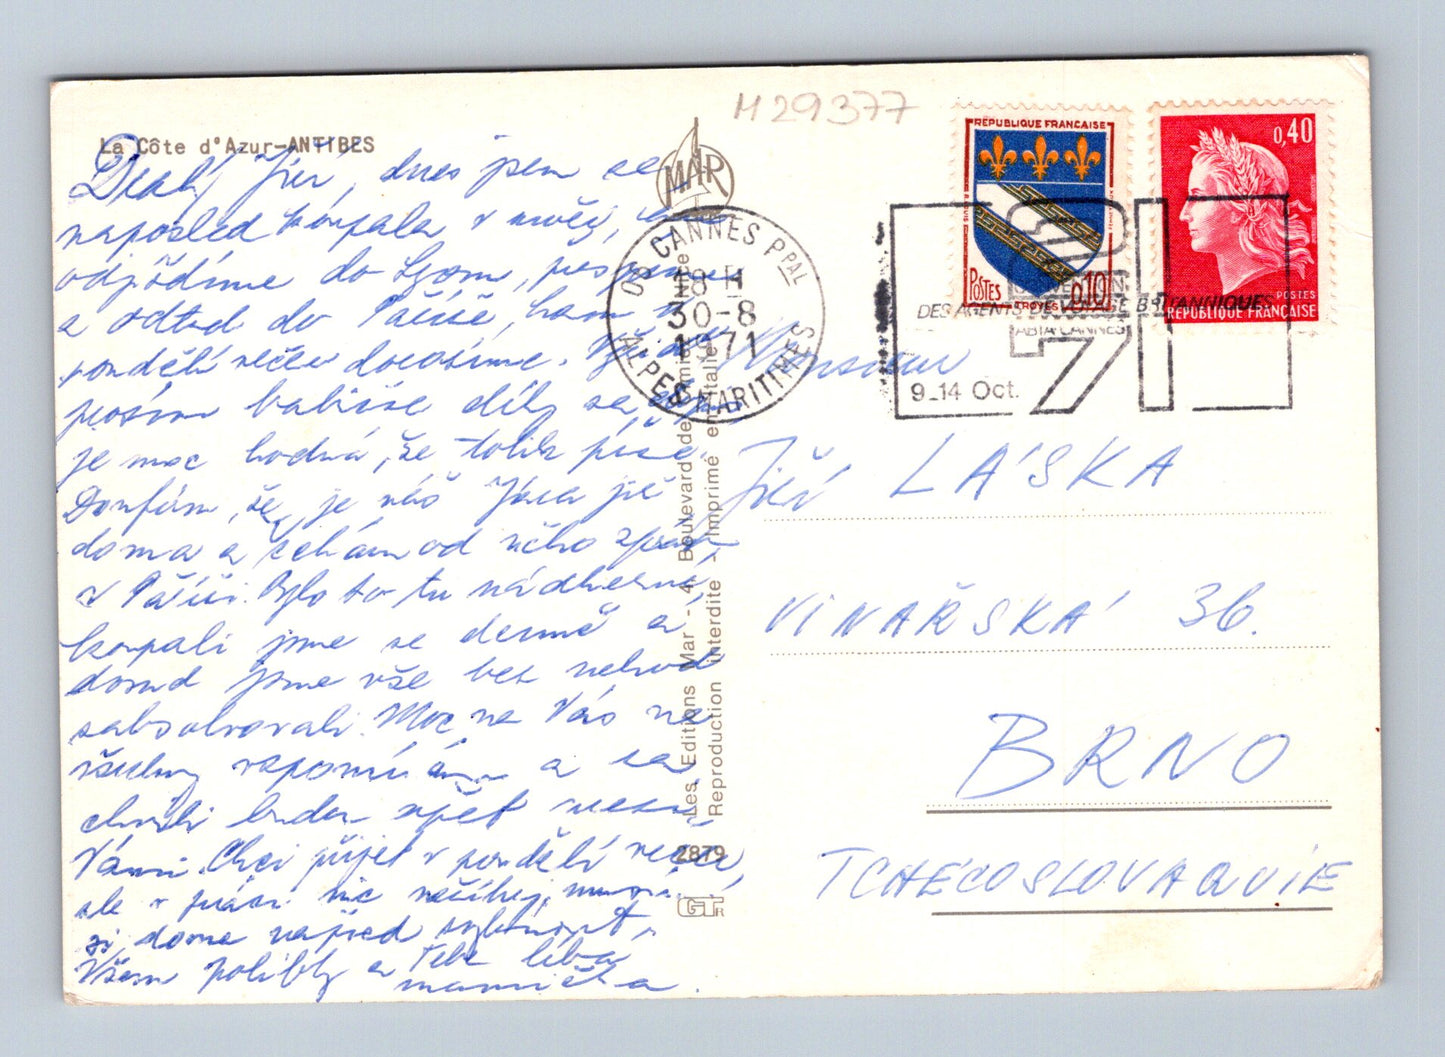 La Côte d'Azur-ANTIBES
H29377
MAR
Drahý Jiří, dnes jsem se
naposled koupala v moři,
odjíždíme do Lyonu,
a odtud do Paříže, kam v
pondělí večer dorazíme.
prosím babičce díky
je moc hodná, že tolik píše.
Doufám, že je náš Jára již
doma a čekám od něho zprávu
v Paříži. Bylo to tu nádherné,
koupali jsme se denně a
dosud jsme vše bez nehod
absolvovali. Moc na Vás na
všechny vzpomínám a za
chvíli budu opět mezi
Vámi. Chci přijet v pondělí večer,
ale v práci nic neříkej, musím
si doma napřed
Všem polibky a Tebe líbá
mamička.
Les Editions Mar - 4, Boulevard de
Reproduction interdite - Imprimé en Italie
2879
GT
06 CANNES PPAL
18 H
30-8
1971
ALPES MARITIMES
RÉPUBLIQUE FRANÇAISE
POSTES
TROYES
0,10
0,40
POSTES
RÉPUBLIQUE FRANÇAISE
71
DES AGENTS DE VOYAGE BRITANNIQUES
ABTA CANNES
9_14 Oct.
Monsieur
Jiří LÁSKA
VINAŘSKÁ 36.
BRNO
TCHÉCOSLOVAQUIE